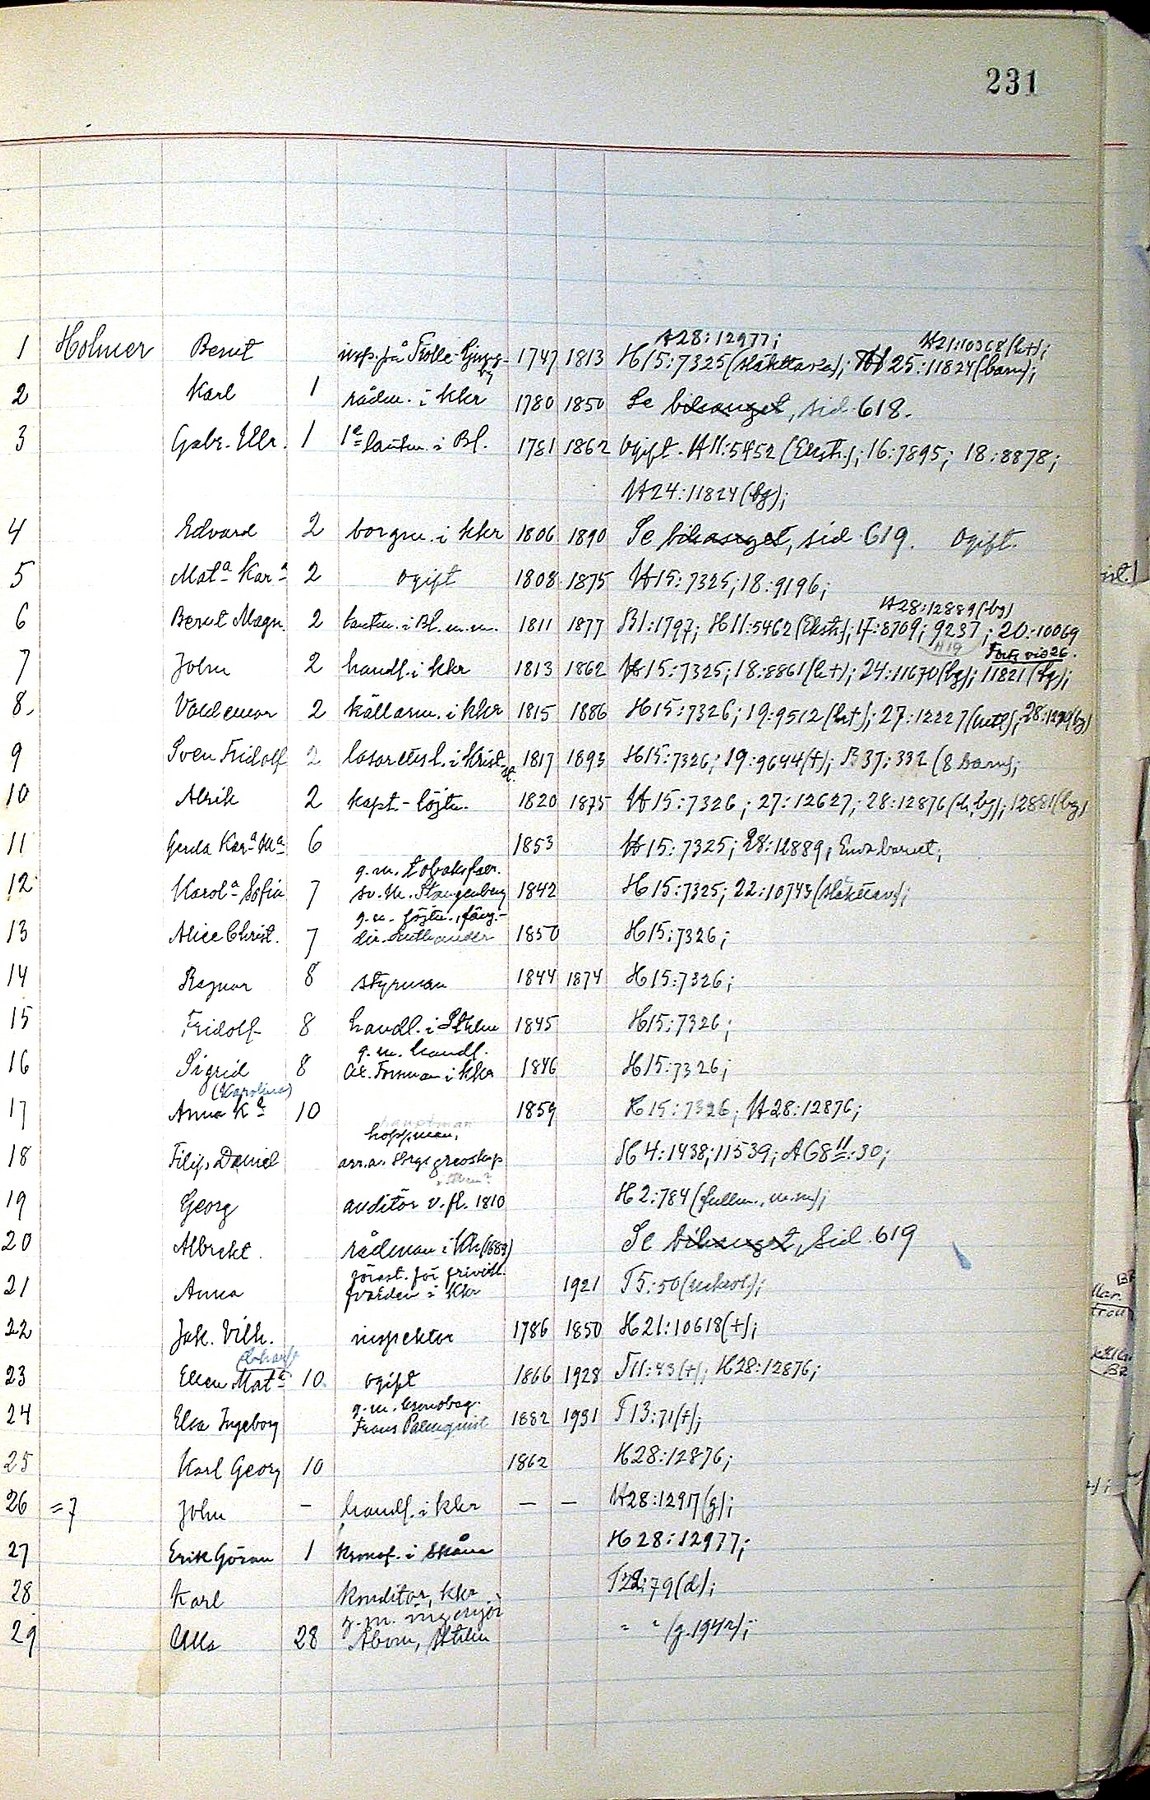 231
H28:12977; H21:10368(h+);
1 Holmer Bernt insp. på Trolle-Ljungby 1747 1813 H15:7325 (släkttavla); H 25:11824 (barn);
2 Karl 1 rådm. i Kkr 1780 1850 Se bihanget, sid 618.
3 Gabr. Ulr. 1 1e lantm. i Bl. 1781 1862 ogift. H11:5452 (Ekstr.); 16:7895; 18:8878;
H24:11824 (bg);
4 Edvard 2 borgm. i Kkr 1806 1890 Se bihanget, sid 619. Ogift.
5 Mata Kara 2 ogift 1808 1875 H15:7325; 18:9196;
H28:12889 (bg)
6 Bernt Magn. 2 lantm. i Bl. m.m. 1811 1877 B1:1797; H11:5462 (Ekstr.); 17:8709; 9237; 20:10069
H19 Forts. vid 26.
7 John 2 handl. i Kkr 1813 1862 H15:7325; 18:8861 (h+); 24:11670 (bg); 11821 (bg);
8. Valdemar 2 källarm. i Kkr 1815 1886 H15:7326; 19:9512 (h+); 27:12227
9 Sven Fridolf 2 lasarettsl. i Krist. 1817 1893 H15:7326; 19:9644 (+); B37:332 (8 barn);
10 Alrik 2 kapt-löjtn. 1820 1875 H15:7326; 27:12627; 28:12876 (h, bg); 12881 (bg)
11 Gerda Kara Ma 6 1853 H15:7325; 28:12889, Enda barnet;
g.m. tobaksfabr.
12 Karola Sofia 7 sv. M. Stangenberg 1842 H15:7325; 22:10743 (släkttavl);
g.m. löjtn., fäng.-
13 Alice Christ. 7 dir. 1850 H15:7326;
14 Ragnar 8 styrman 1844 1874 H15:7326;
15 Fridolf 8 handl. i Sthlm 1845 H15:7326;
g.m. handl.
16 Sigrid 8 Al. Forsman i Kkr 1846 H15:7326;
(Karolina)
17 Anna Ka 10 1859 H15:7326; H28:12876;
hauptman
hoppman,
18 Filip Daniel arr. av 4:1438; 11539; AG8II:30;
19 Georg auditör v. fl. 1810 H2:784 (fullm., m.m);
20 Albrekt. rådman i Kkr (1683) Se bihanget, sid. 619
förest. för frivill.
21 Anna fvården i Kkr 1921 T5:50 (nekrol);
22 Jak. Vilh. inspektor 1786 1850 H21:10618 (+);
23 Ellen Mata 10. ogift 1866 1928 T11:43 (+); H28:12876;
g.m. kronobeg.
24 Elsa Ingeborg Frans Palmquist 1882 1931 T13:71 (+);
25 Karl Georg 10 1862 H28:12876;
26 =7 John - handl. i Kkr - - H28:12917 (g);
27 Erik Göran 1 Kronof. i Skåne H28:12977;
28 Karl Konditor, Kkr T22:79 (d);
g.m. ingenjör
29 Ulla 28 Åbom, Sthlm " " (g. 1942);